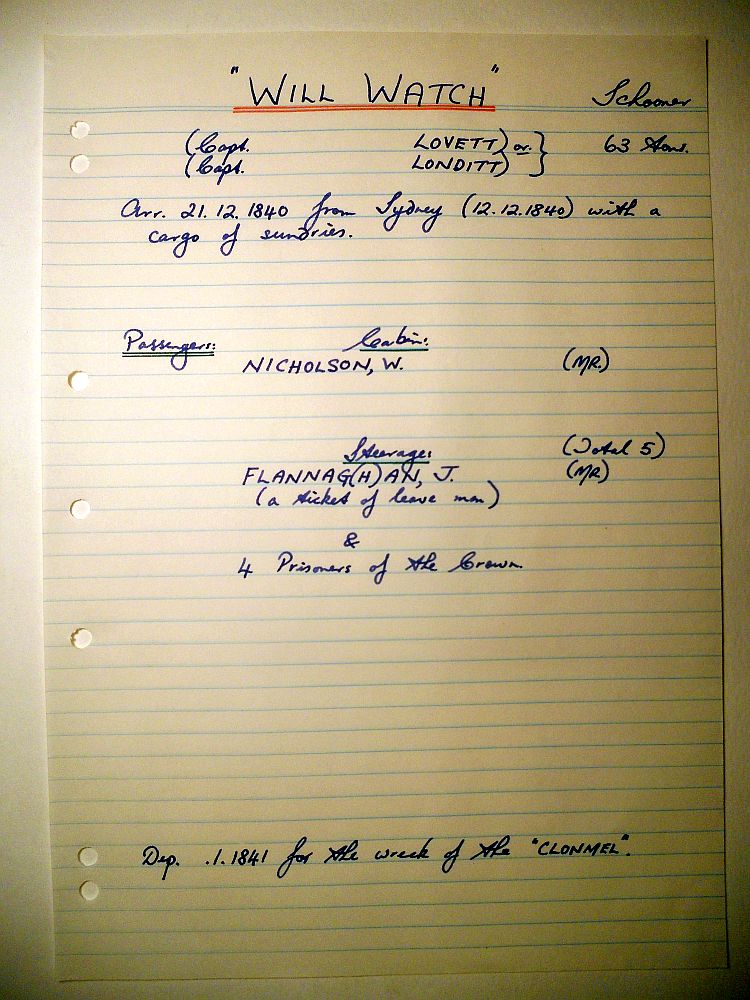 "WILL WATCH" Schooner
(Capt. LOVETT) or } 63 tons.
(Capt. LONDITT)
Arr. 21.12.1840 from Sydney (12.12.1840) with a
cargo of sundries.
Passengers: Cabin:
NICHOLSON, W. (MR.)
Steerage: (Total 5)
FLANNAG(H)AN, J. (MR)
(a ticket of leave man)
&
4 Prisoners of the Crown
Dep. .1.1841 for the wreck of the "CLONMEL".